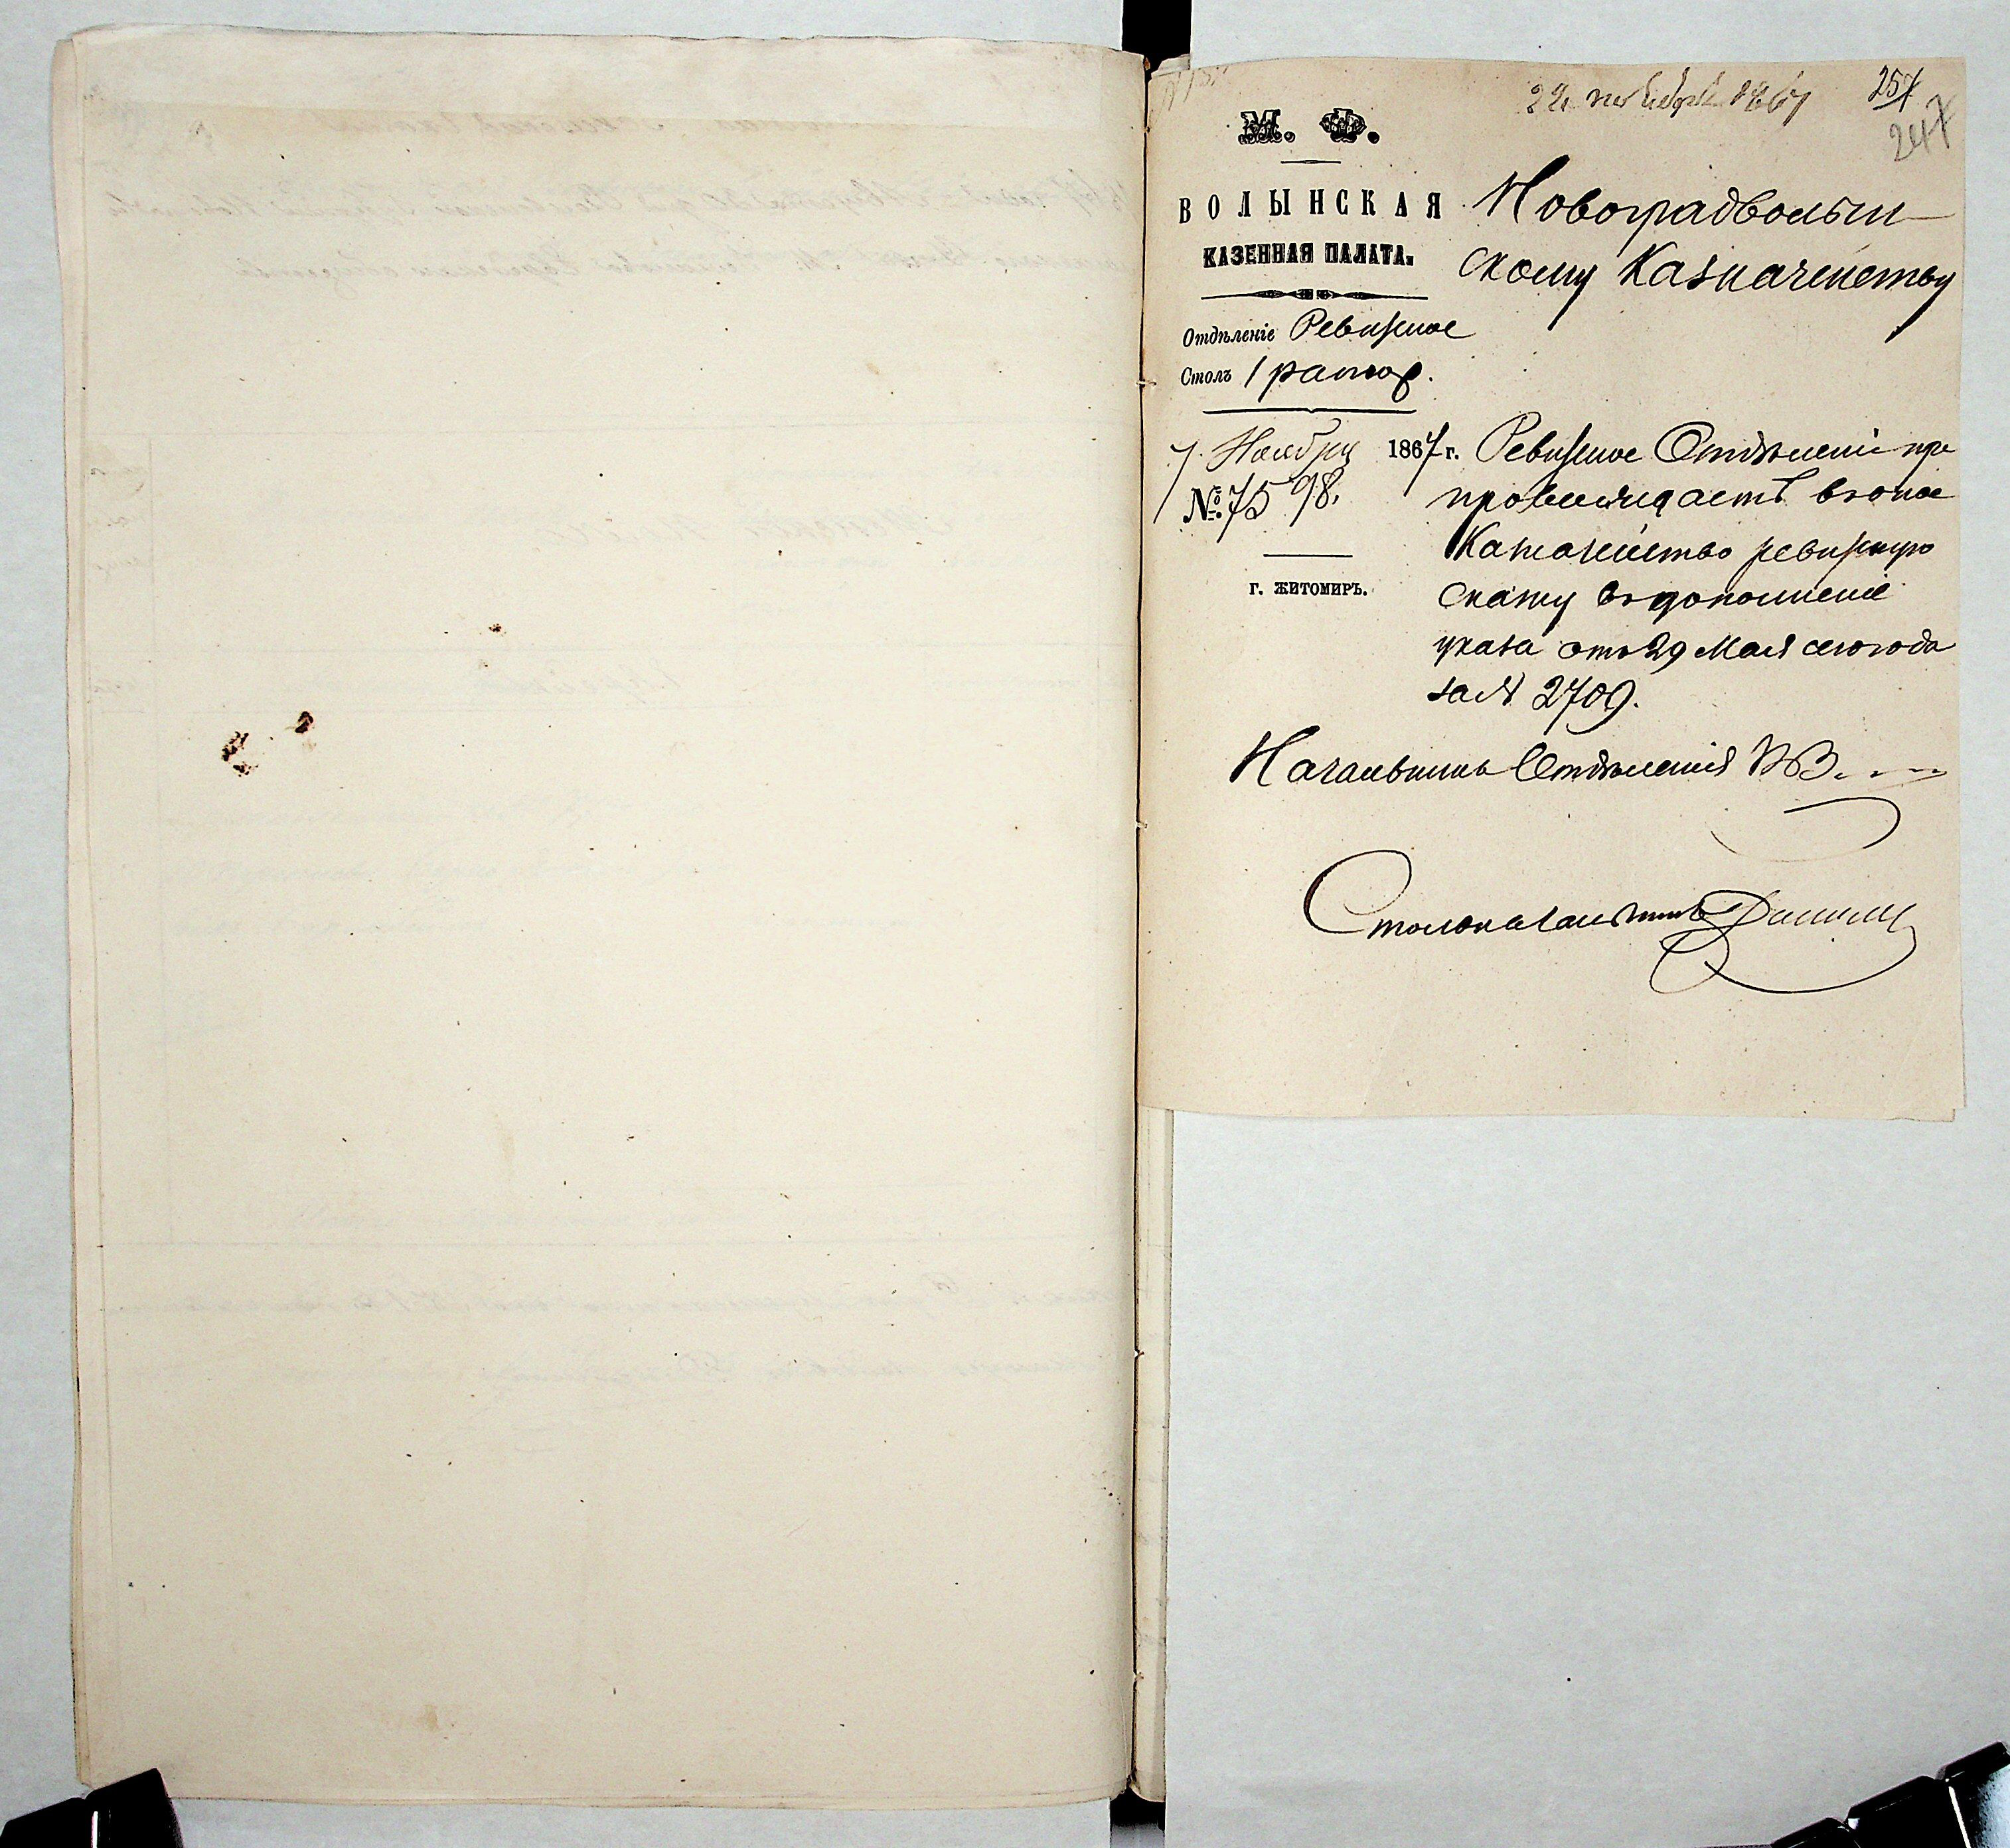 22 ноября 1867
257
247
М. Ф.
ВОЛЫНСКАЯ
КАЗЕННАЯ ПАЛАТА.
Новоградволын-
скому Казначейству
Отдѣленіе Ревизское
Столъ 1
7 Ноября 1867 г.
№ 7598.
г. ЖИТОМИРЪ.
Ревизское Отдѣленіе пре
провождаетъ въ оное
Казначейство ревизскую
сказку въ дополненіе
указа отъ 29 Мая сего года
за № 2709.
Начальникъ Отдѣленія
Столоначальникъ